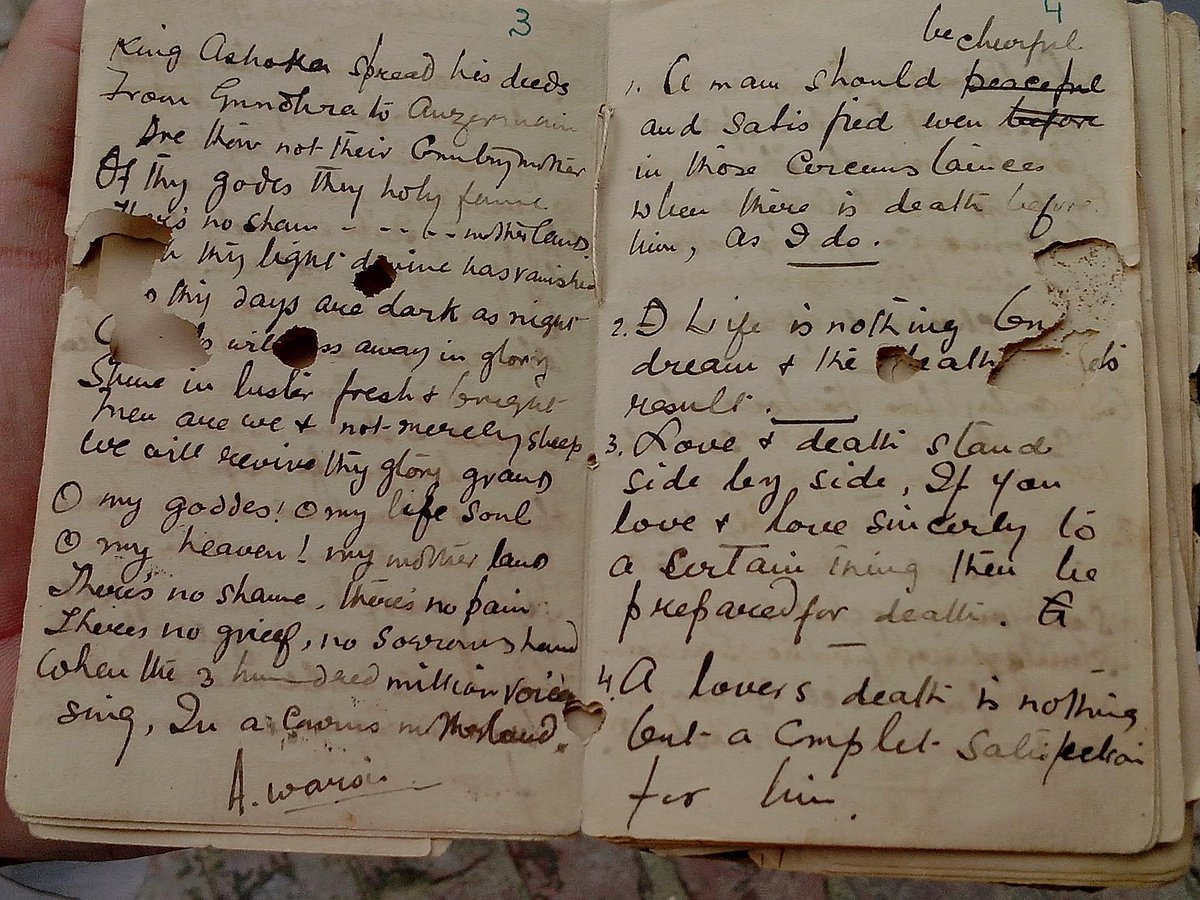 3
King Ashoka spread his deeds
From Gundhra to
Are thou not their Country mother
Of thy godes they holy fame
no sham - - - - - motherland
thy light divine has vanished
thy days are dark as night
away in glory
Shine in luster fresh & bright
Men are we & not merely sheep
We will revive thy glory grand
O my goddes! O my life soul
O my heaven! my mother land
There's no shame, there's no pain
There's no grief, no sorrows hand
When the 3 hundered million voices
sing, In a motherland.
4
be cheerful
1. A man should peaceful
and satisfied even before
in those Circumstainces
when there is death before
him, as I do.
2. Life is nothing
dream & the death
result.
3. Love & death stand
side by side, If you
love & love sincerly to
a certain thing then be
prepared for death.
4. A lovers death is nothing
but a complet satisfection
for him.